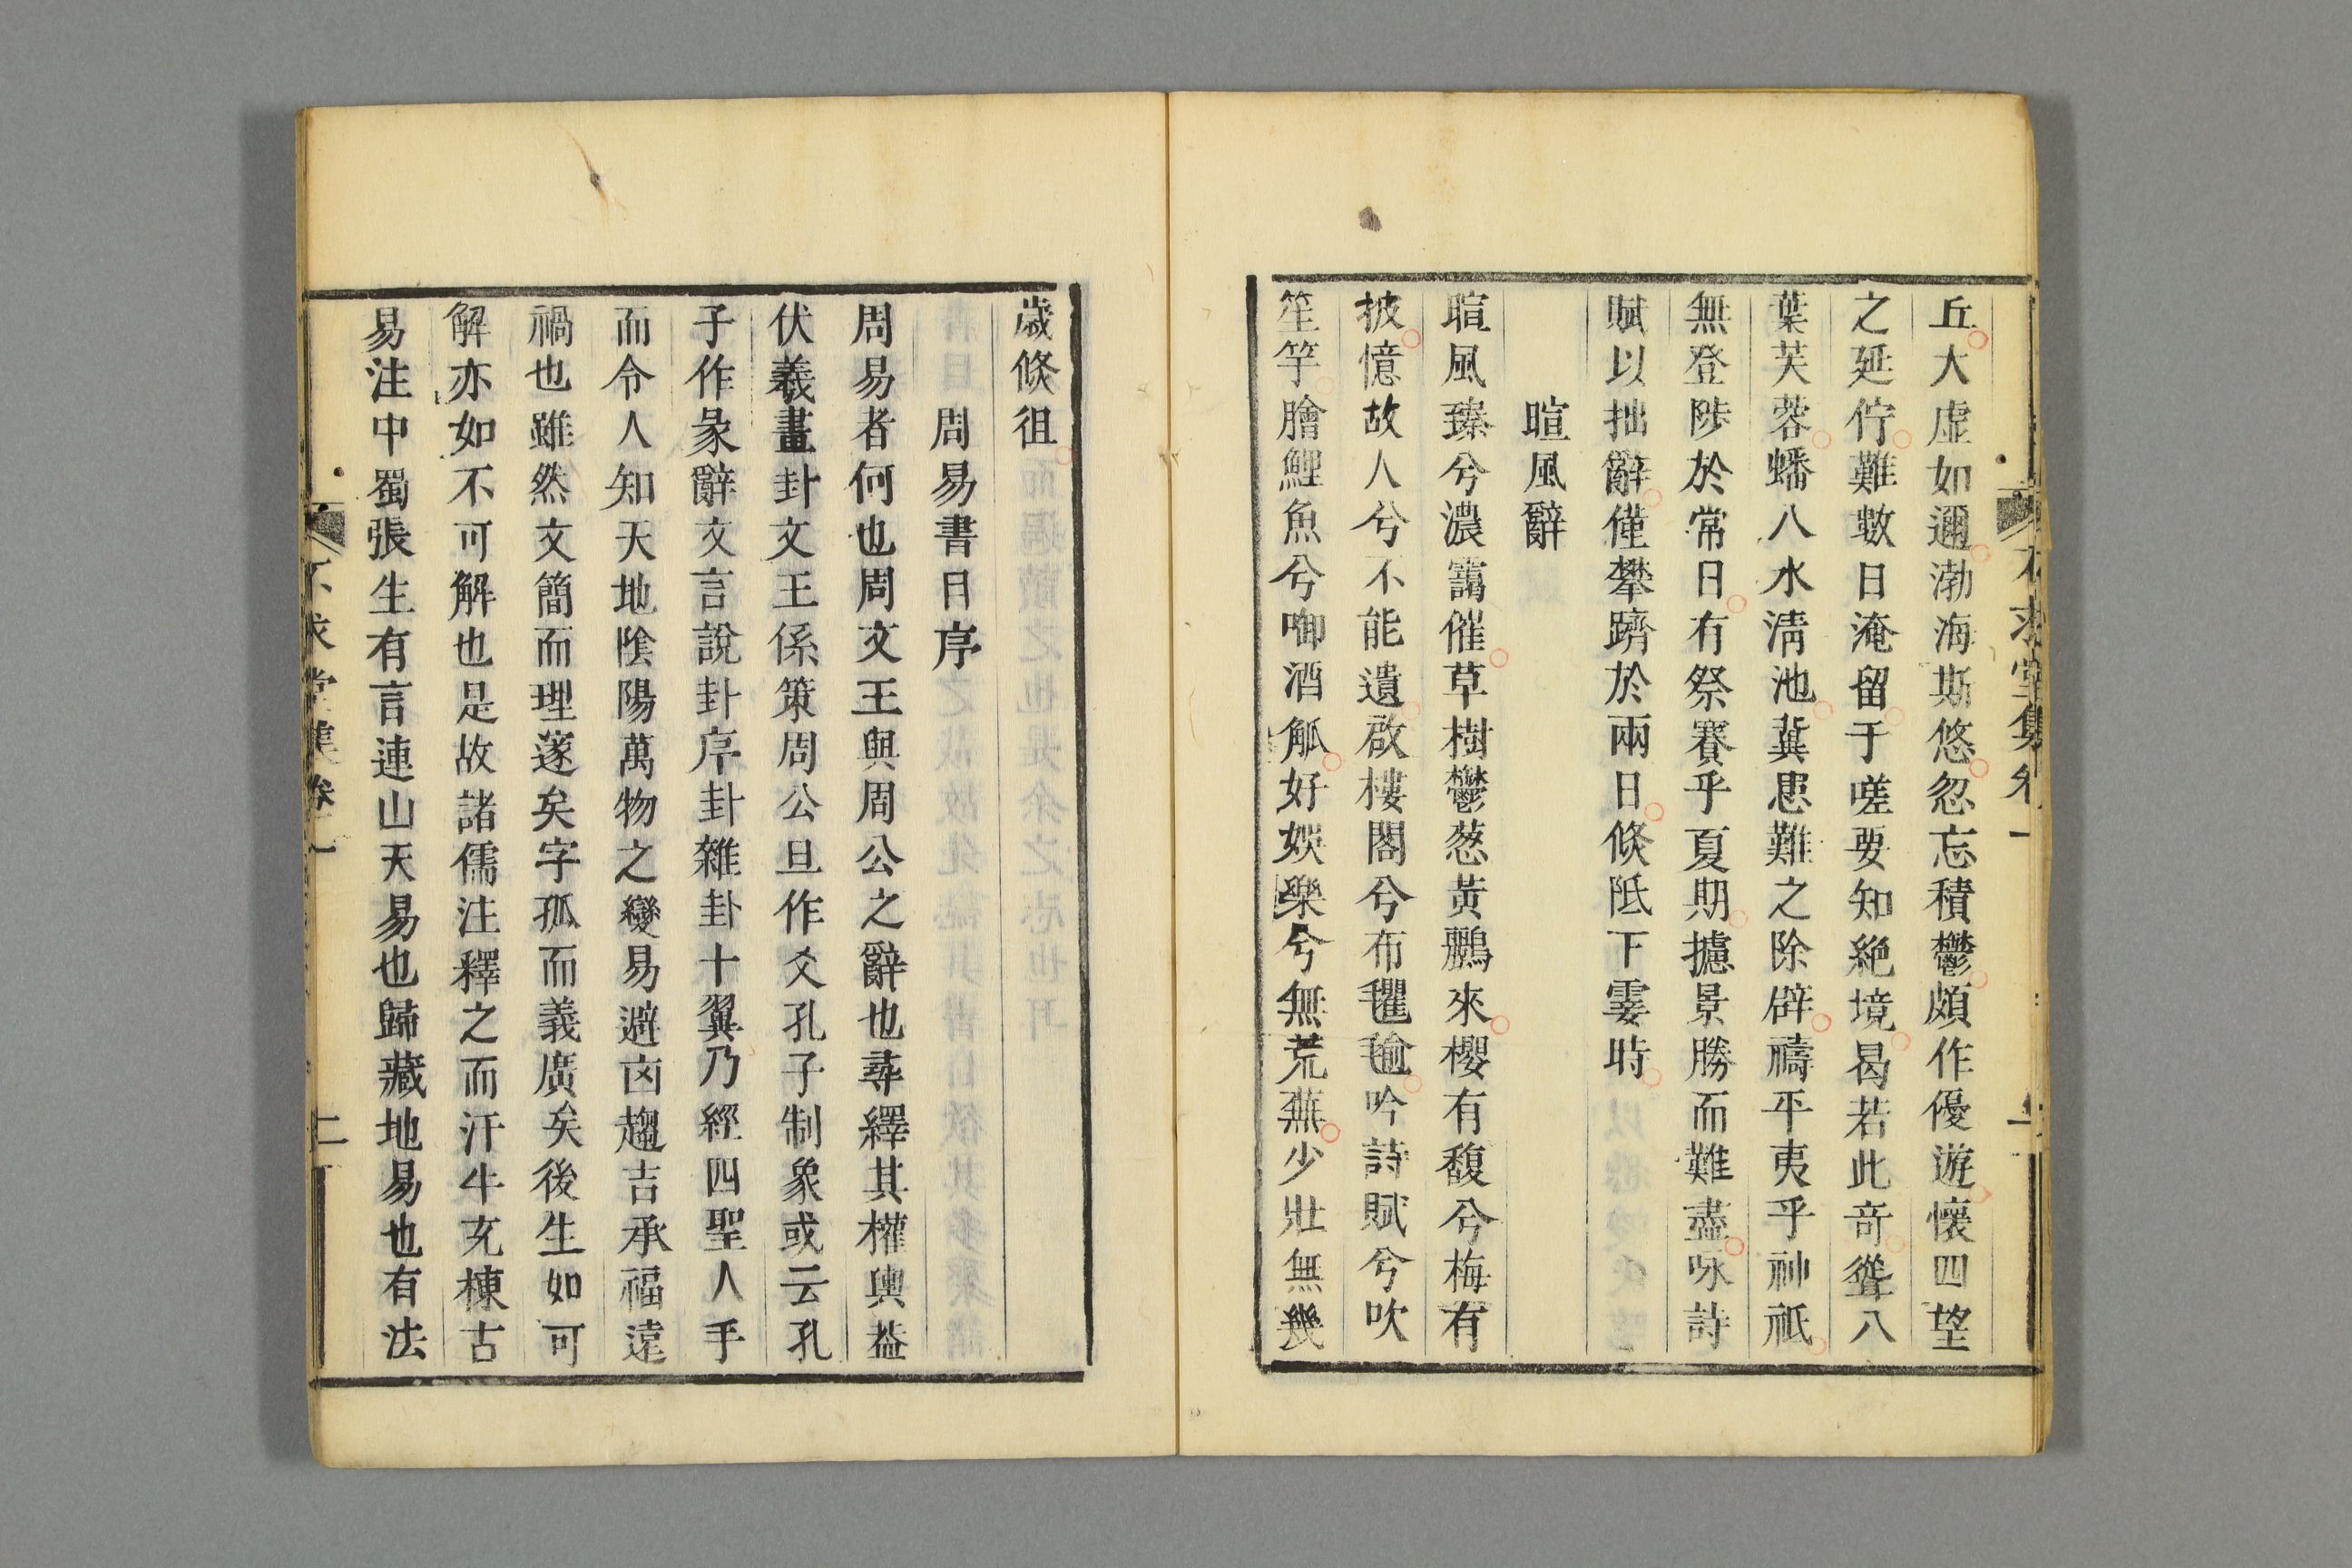 丘大虛如邇渤海斯悠忽忘積鬱頗作優遊懷四望
之延佇難數日淹留于嗟要知絕境曷若此奇聳八
葉芙蓉蟠八水淸池冀患難之除辟禱平夷乎神祇
無登陟於常日有祭賽乎夏期攄景勝而難盡咏詩
賦以拙辭僅攀躋於兩日倏阺下霎時
暄風辭
暄風臻兮濃靄催草樹鬱葱黃鸝來櫻有馥兮梅有
披憶故人兮不能遺啟樓閣兮布氍毹吟詩賦兮吹
笙竽膾鯉魚兮啣酒觚好娛樂兮無荒蕪少壯無幾
歲倏徂
周易書日序
周易者何也周文王與周公之辭也尋繹其權輿蓋
伏羲畫卦文王係彖周公旦作爻孔子制象或云孔
子作彖辭文言說卦序卦雜卦十翼乃經四聖人手
而令人知天地陰陽萬物之變易避凶趨吉承福遠
禍也雖然文簡而理邃矣字孤而義廣矣後生如可
解亦如不可解也是故諸儒注釋之而汗牛充棟古
易注中蜀張生有言連山天易也歸藏地易也有法
不求堂集卷一
二